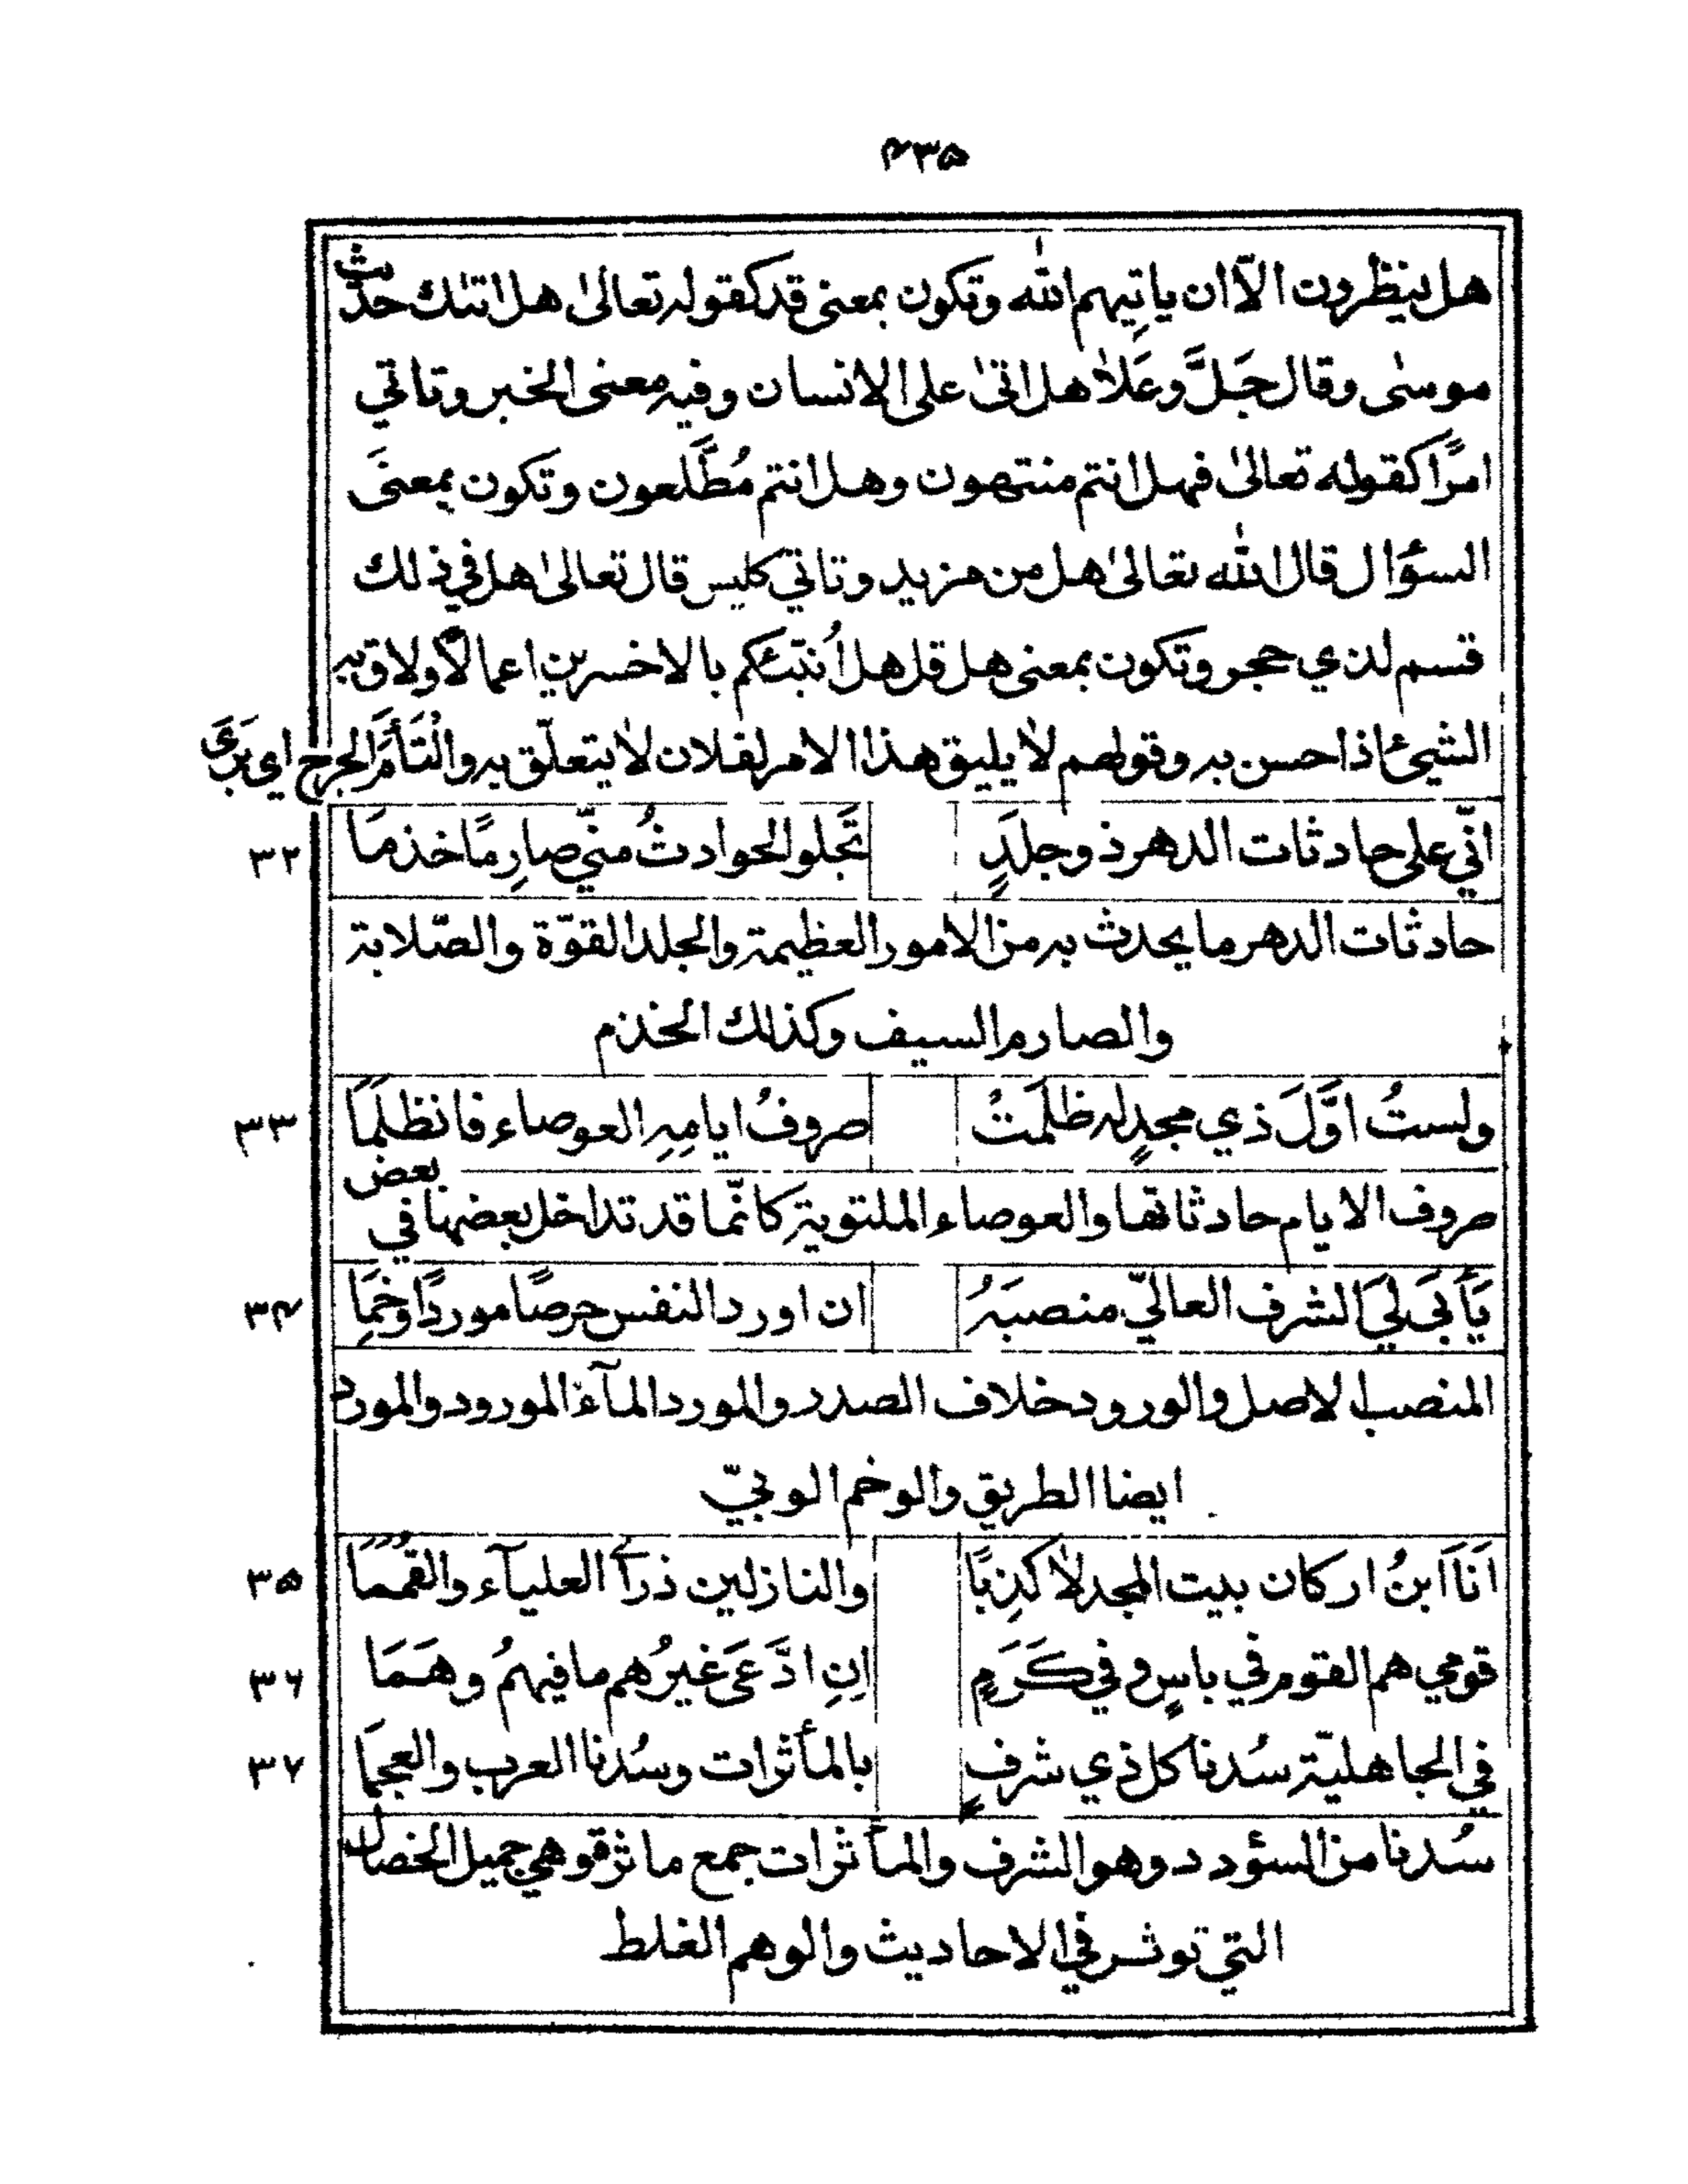 ۴۳۵
هل ينظرون الاّ ان ياتِيهم الله وتكون بمعنى قد كقوله تعالىٰ هل اتٮٰك حديث
موسٰى وقال جَلَّ وعَلاٰ هل اتىٰ على الانسان وفيه معنى الخبر وتاتي
امرًا كقوله تعالىٰ فهل انتم منتهون وهل انتم مُطَّلعون وتكون بمعنَى
السؤال قال الله تعالىٰ هل من مزيد وتاتي كليس قال تعالىٰ هل في ذلك
قسم لذي حجر وتكون بمعنى هل قل هل اُنبّئكم بالاخسرين اعمالاً ولاق به
الشيئ اذا حسن به وقولهم لاٰ يليق هذا الامر لفلان لاٰ يتعلّق به والْتَأَمَ الجرح اي بَرَى
انّي على حادثات الدهر ذو جلَدٍ تَجلو الحوادثُ منّي صارِمًا خذمَا ۳۲
حادثات الدهر ما يحدث به من الامور العظيمة والجلد القوّة والصّلابة
والصارم السيف وكذلك الخذم
ولستُ اوَّلَ ذي مجدٍ له ظلَمَتْ صروفُ ايامِهِ العوصاء فانظلَمَا ۳۳
صروف الايام حادثاتها والعوصاء الملتوية كانّما قد تداخل بعضها في بعض
يَأبَى ليَ الشرف العاليّ منصبَهُ ان اورد النفس حرصًا موردًا وخَمِا ۳۴
المنصب الاصل والورود خلاف الصدر والمورد المآء المورود والمورد
ايضا الطريق والوخم الوبيّ
اَنَا ابنُ اركان بيت المجد لاٰ كذِبًا والنازلين ذرأ العليآء والقُمُمَا ۳۵
قومي هم القوم في باسٍ وفي كَرَمٍ اِنِ ادَّعَى غيرُهم ما فيهمُ وهَمَا ۳۶
في الجاهليّة سُدنا كل ذي شرفٍ بالمأثرات وسُدنا العرب والعجمَا ۳۷
سُدنا من السؤدد وهو الشرف والمأثرات جمع ماثرة وهي جميل الخصال
التي توثر في الاحاديث والوهم الغلط